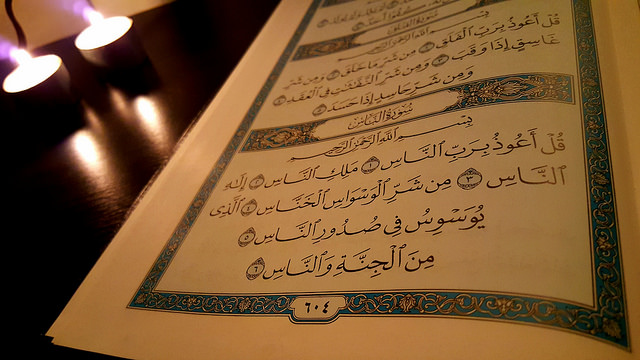 سُورَةُ الفَلَقِ
بِسْمِ ٱللَّهِ ٱلرَّحْمَٰنِ ٱلرَّحِيمِ
قُلْ أَعُوذُ بِرَبِّ ٱلْفَلَقِ ١ مِن شَرِّ مَا خَلَقَ ٢ وَمِن شَرِّ
غَاسِقٍ إِذَا وَقَبَ ٣ وَمِن شَرِّ ٱلنَّفَّٰثَٰتِ فِى ٱلْعُقَدِ ٤
وَمِن شَرِّ حَاسِدٍ إِذَا حَسَدَ ٥
سُورَةُ النَّاسِ
بِسْمِ ٱللَّهِ ٱلرَّحْمَٰنِ ٱلرَّحِيمِ
قُلْ أَعُوذُ بِرَبِّ ٱلنَّاسِ ١ مَلِكِ ٱلنَّاسِ ٢ إِلَٰهِ
ٱلنَّاسِ ٣ مِن شَرِّ ٱلْوَسْوَاسِ ٱلْخَنَّاسِ ٤ ٱلَّذِى
يُوَسْوِسُ فِى صُدُورِ ٱلنَّاسِ ٥
مِنَ ٱلْجِنَّةِ وَٱلنَّاسِ ٦
٦٠٤